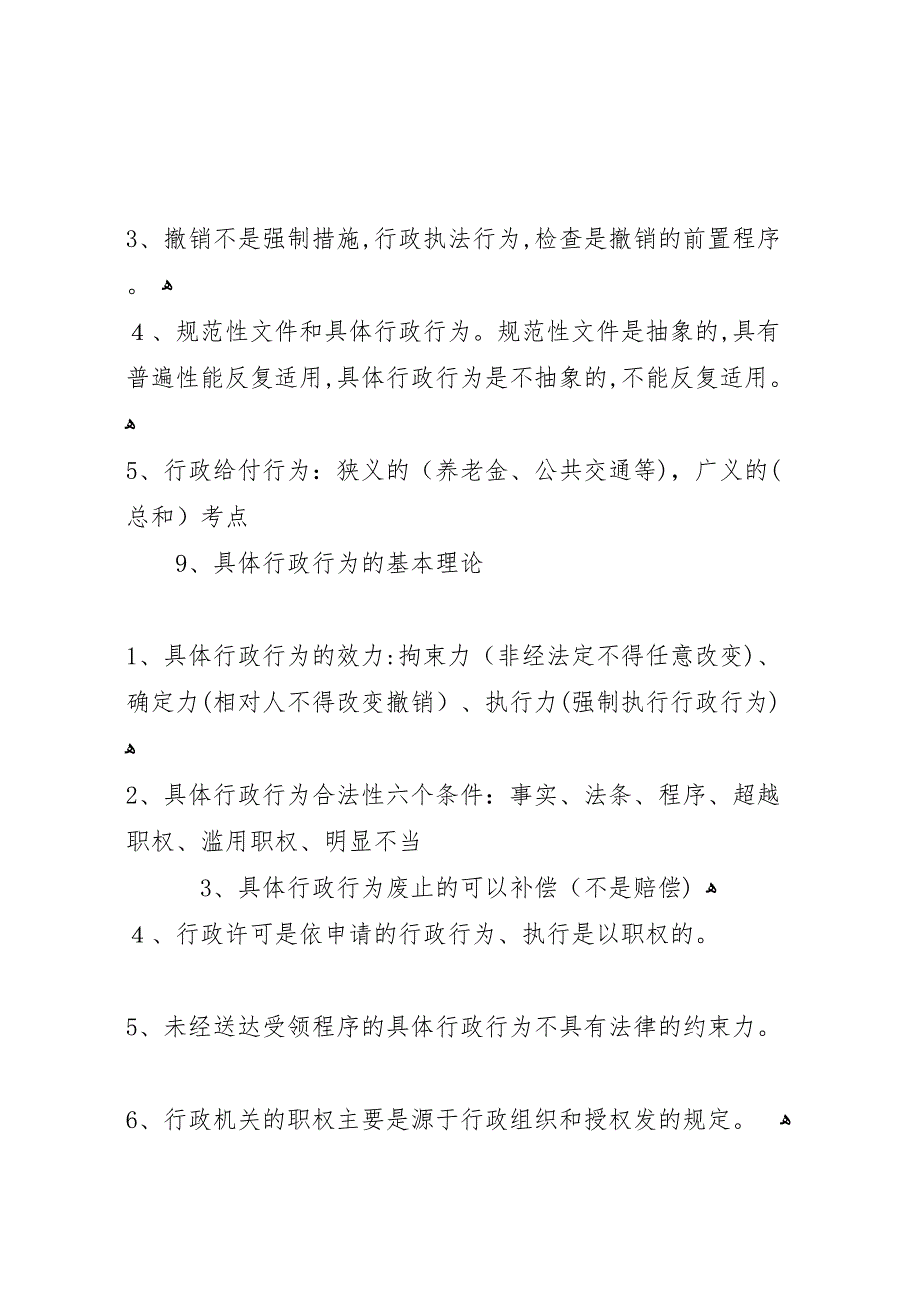 3、撤销不是强制措施,行政执法行为,检查是撤销的前置程序
。 ﻫ
４、规范性文件和具体行政行为。规范性文件是抽象的,具有
普遍性能反复适用,具体行政行为是不抽象的,不能反复适用。
ﻫ
5、行政给付行为：狭义的（养老金、公共交通等)，广义的(
总和）考点
9、具体行政行为的基本理论
1、具体行政行为的效力:拘束力（非经法定不得任意改变)、
确定力(相对人不得改变撤销）、执行力(强制执行行政行为)
ﻫ
2、具体行政行为合法性六个条件：事实、法条、程序、超越
职权、滥用职权、明显不当
3、具体行政行为废止的可以补偿（不是赔偿) ﻫ
４、行政许可是依申请的行政行为、执行是以职权的。
5、未经送达受领程序的具体行政行为不具有法律的约束力。
6、行政机关的职权主要是源于行政组织和授权发的规定。 ﻫ